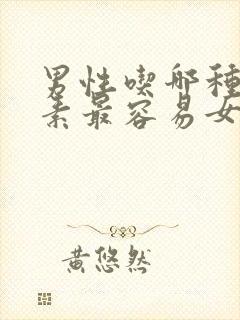 男性喫哪種
素最容易女
黄悠然